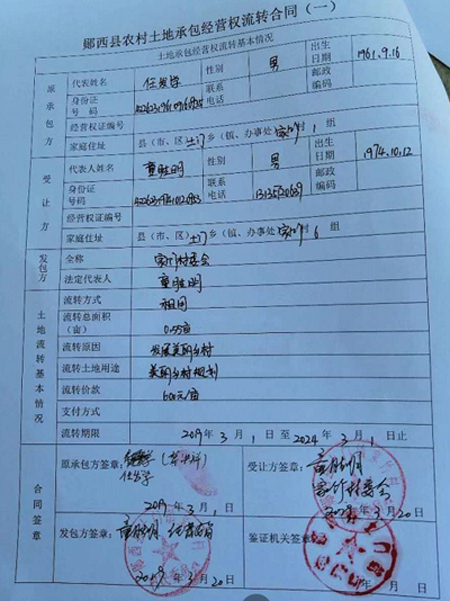 郧西县农村土地承包经营权流转合同（一）
土地承包经营权流转基本情况
原承包方
代表姓名 任发学 性别 男 出生日期 1961.9.16
身份证号码 联系电话 邮政编码
经营权证编号
家庭住址 县（市、区）土门乡（镇、办事处 村 1 组
受让方
代表人姓名 童胜明 性别 男 出生日期 1974.10.12
身份证号码 联系电话 邮政编码
经营权证编号
家庭住址 县（市、区）土门乡（镇、办事处 村 6 组
发包方
全称 村委会
法定代表人 童胜明
土地流转基本情况
流转方式 租用
流转总面积（亩） 0.55亩
流转原因 发展美丽乡村
流转土地用途 美丽乡村规划
流转价款 600元/亩
支付方式
流转期限 2019年 3 月 1 日 至 2024年 3 月 1 日止
合同签章
原承包方签章： 任发学
受让方签章： 童胜明
村委会
2019年 3 月 1 日
年 3 月 20 日
发包方签章： 童胜明
鉴证机关签章：
2019年 3 月 20 日
年 3 月 20 日